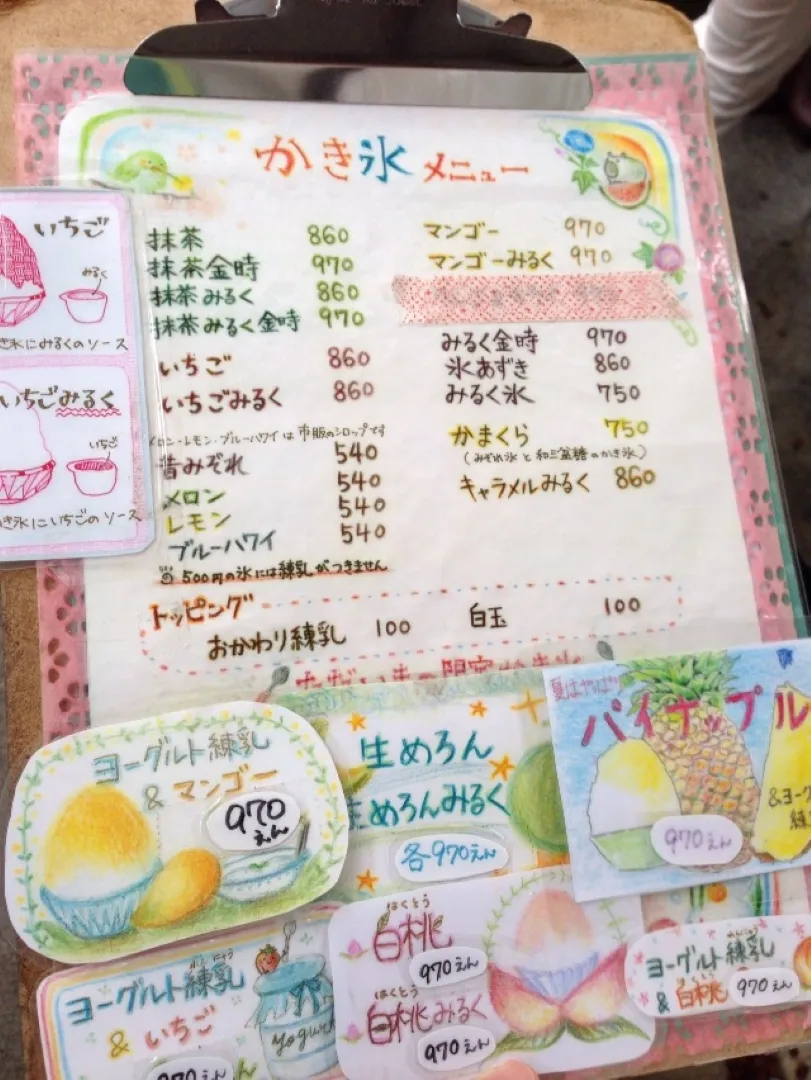 かき氷 メニュー
抹茶 860
抹茶金時 970
抹茶みるく 860
抹茶みるく金時 970
いちご 860
いちごみるく 860
メロン・レモン・ブルーハワイは市販のシロップです
昔みぞれ 540
メロン 540
レモン 540
ブルーハワイ 540
500円の氷には練乳がつきません
マンゴー 970
マンゴーみるく 970
みるく金時 970
氷あずき 860
みるく氷 750
かまくら 750
(みぞれ氷と和三盆糖のかき氷)
キャラメルみるく 860
トッピング
おかわり練乳 100 白玉 100
いちご
みるく
き氷にみるくのソース
いちごみるく
いちご
き氷にいちごのソース
ヨーグルト練乳
& マンゴー
970
えん
生めろん
生めろんみるく
各970えん
夏はやっぱり
パイナップル
&ヨーグ
練
970えん
ヨーグルト練乳
にゅう
& いちご
yogurt
970えん
はくとう
白桃
970えん
はくとう
白桃みるく
970えん
れんにゅう
ヨーグルト練乳
はくとう
& 白桃 970えん